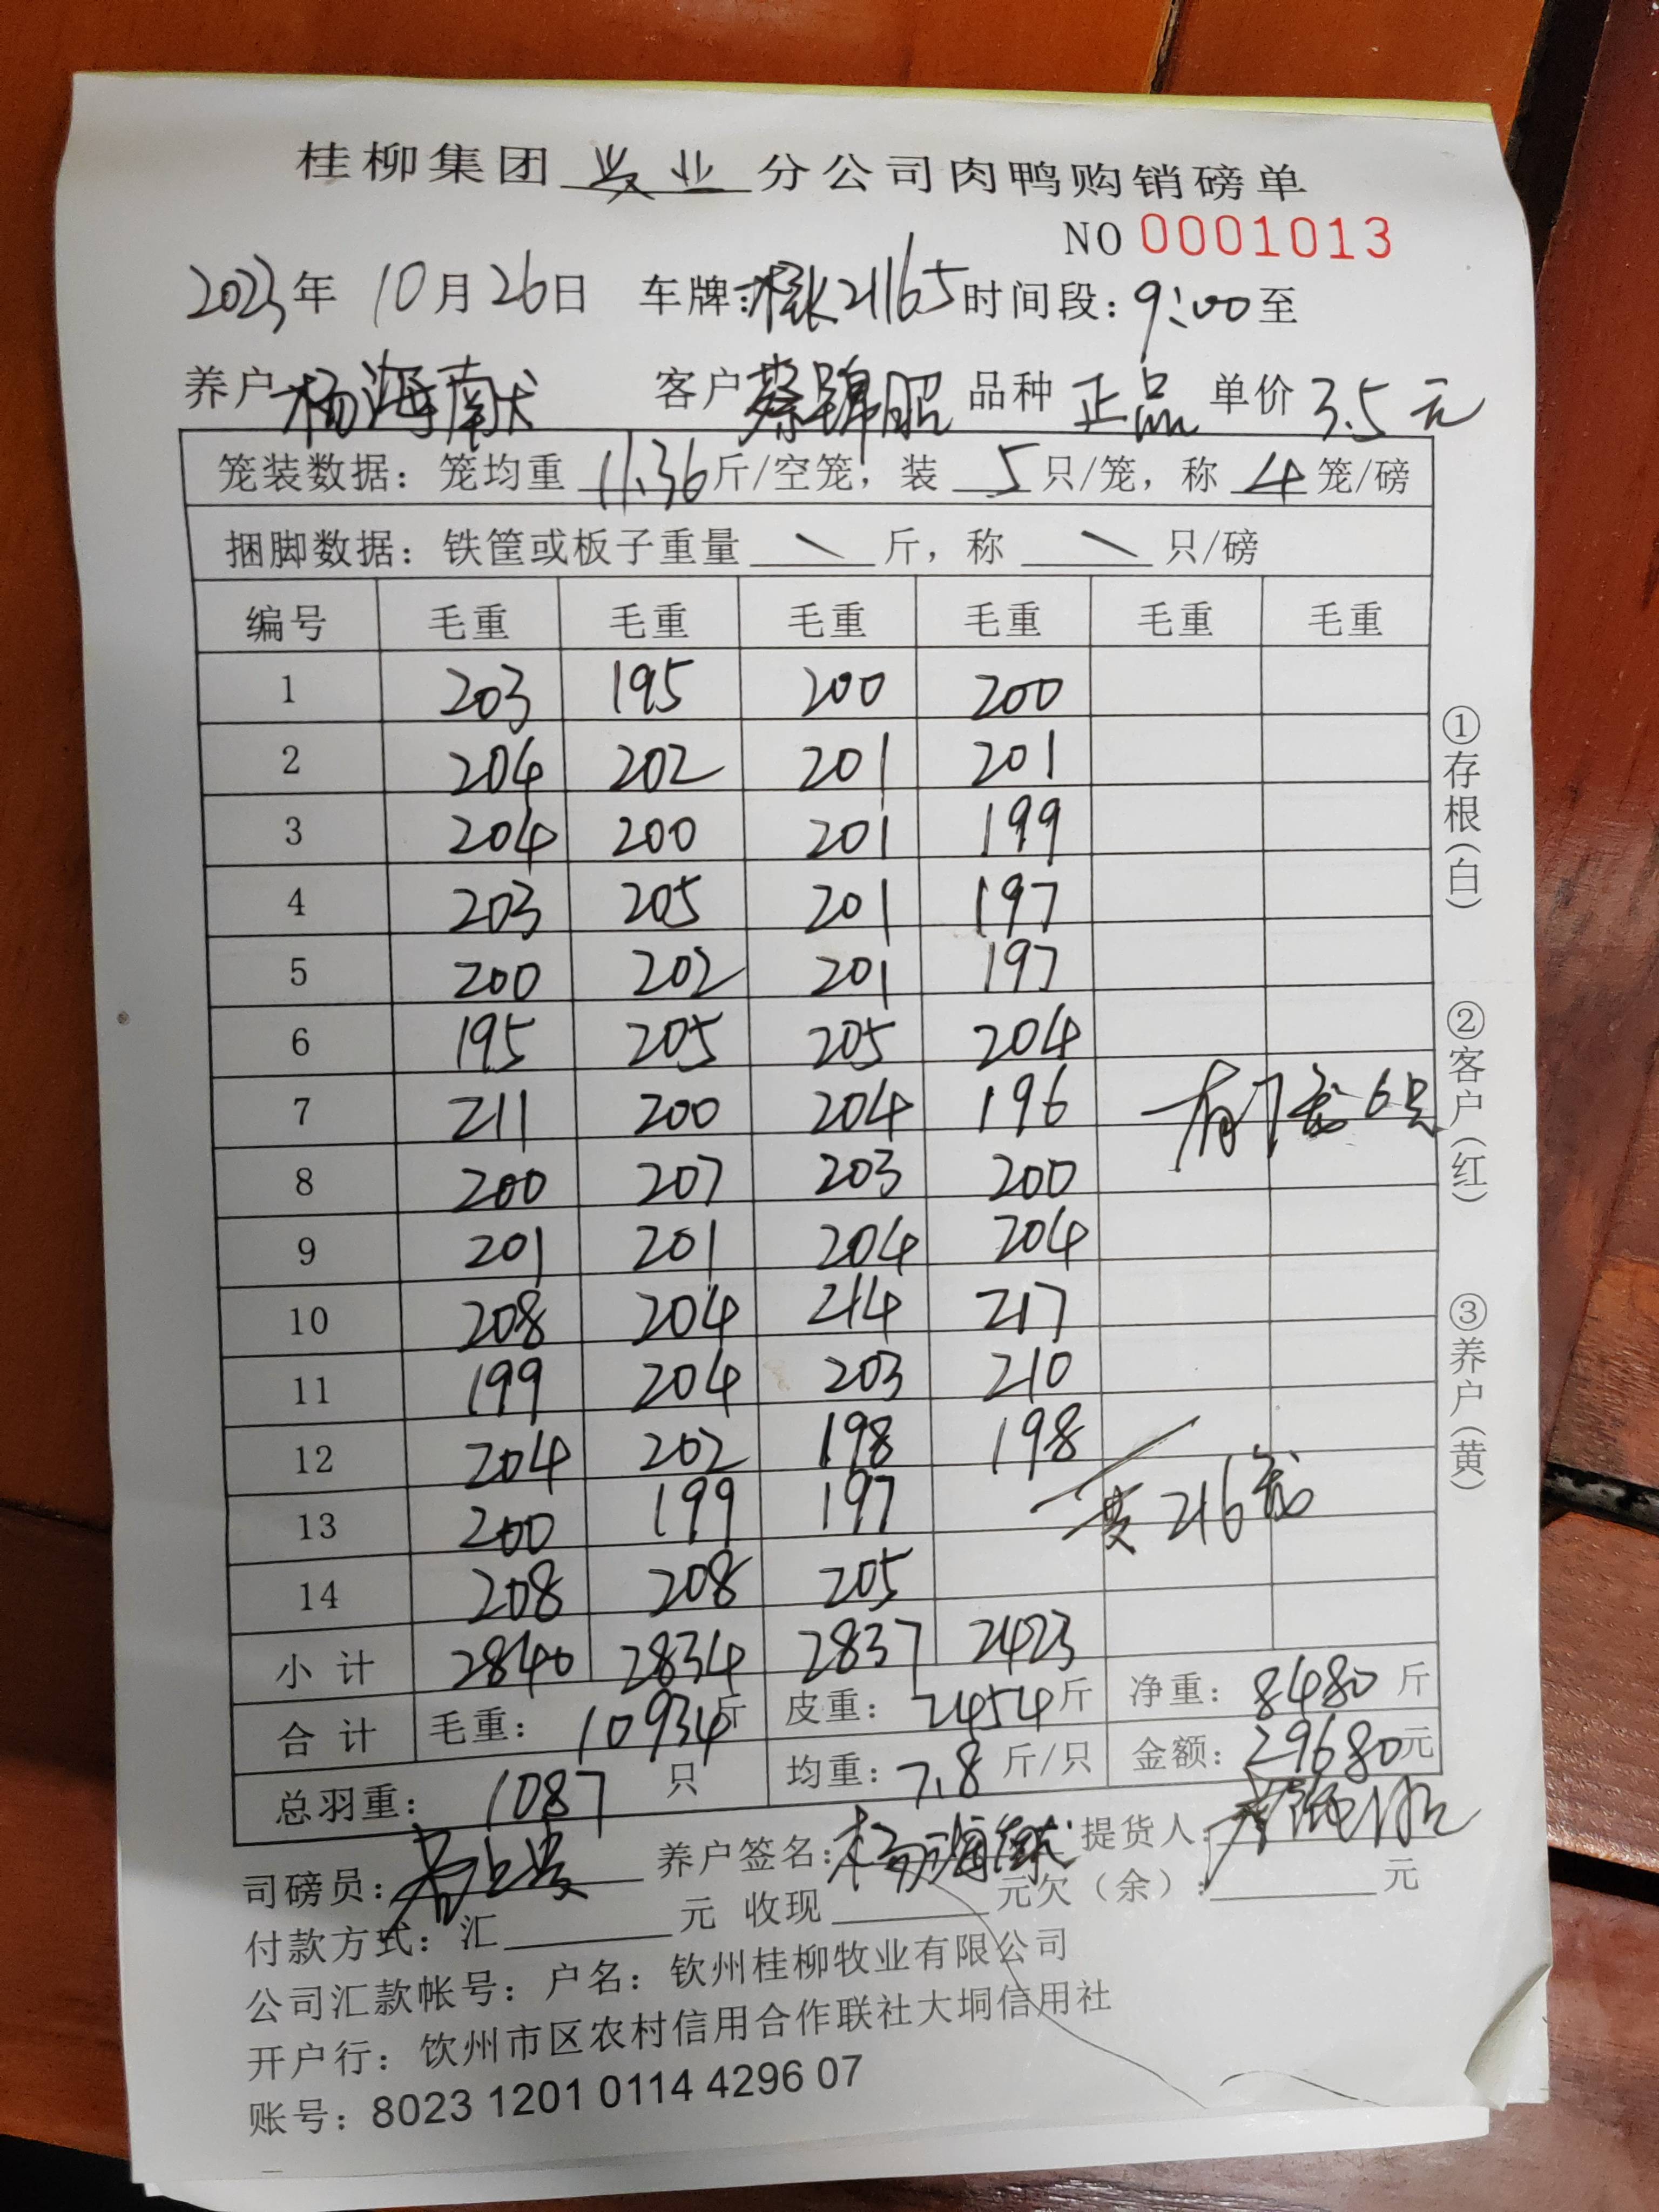 桂柳集团 兴业 分公司肉鸭购销磅单
NO 0001013
2023年 10月26日 车牌:21165 时间段:9:00至
养户 杨海南 客户 蔡锦昭 品种 正品 单价 3.5元
笼装数据:笼均重 11.36 斤/空笼,装 5 只/笼,称 4 笼/磅
捆脚数据:铁筐或板子重量 \ 斤,称 \ 只/磅
编号 毛重 毛重 毛重 毛重 毛重 毛重
1 203 195 200 200
2 204 202 201 201
3 204 200 201 199
4 203 205 201 197
5 200 202 201 197
6 195 205 205 204
7 211 200 204 196 有7笼6只
8 200 207 203 200
9 201 201 204 204
10 208 204 214 217
11 199 204 203 210
12 204 202 198 198
13 200 199 197 216笼
14 208 208 205
小计 2840 2834 2837 2423
合计 毛重:10934斤 皮重:2454斤 净重:8480斤
总羽重:1087只 均重:7.8斤/只 金额:29680元
司磅员: 养户签名:杨海 提货人:
付款方式:汇 元 收现 元欠(余): 元
公司汇款帐号:户名:钦州桂柳牧业有限公司
开户行:钦州市区农村信用合作联社大垌信用社
账号:8023 1201 0114 4296 07
①存根(白)
②客户(红)
③养户(黄)